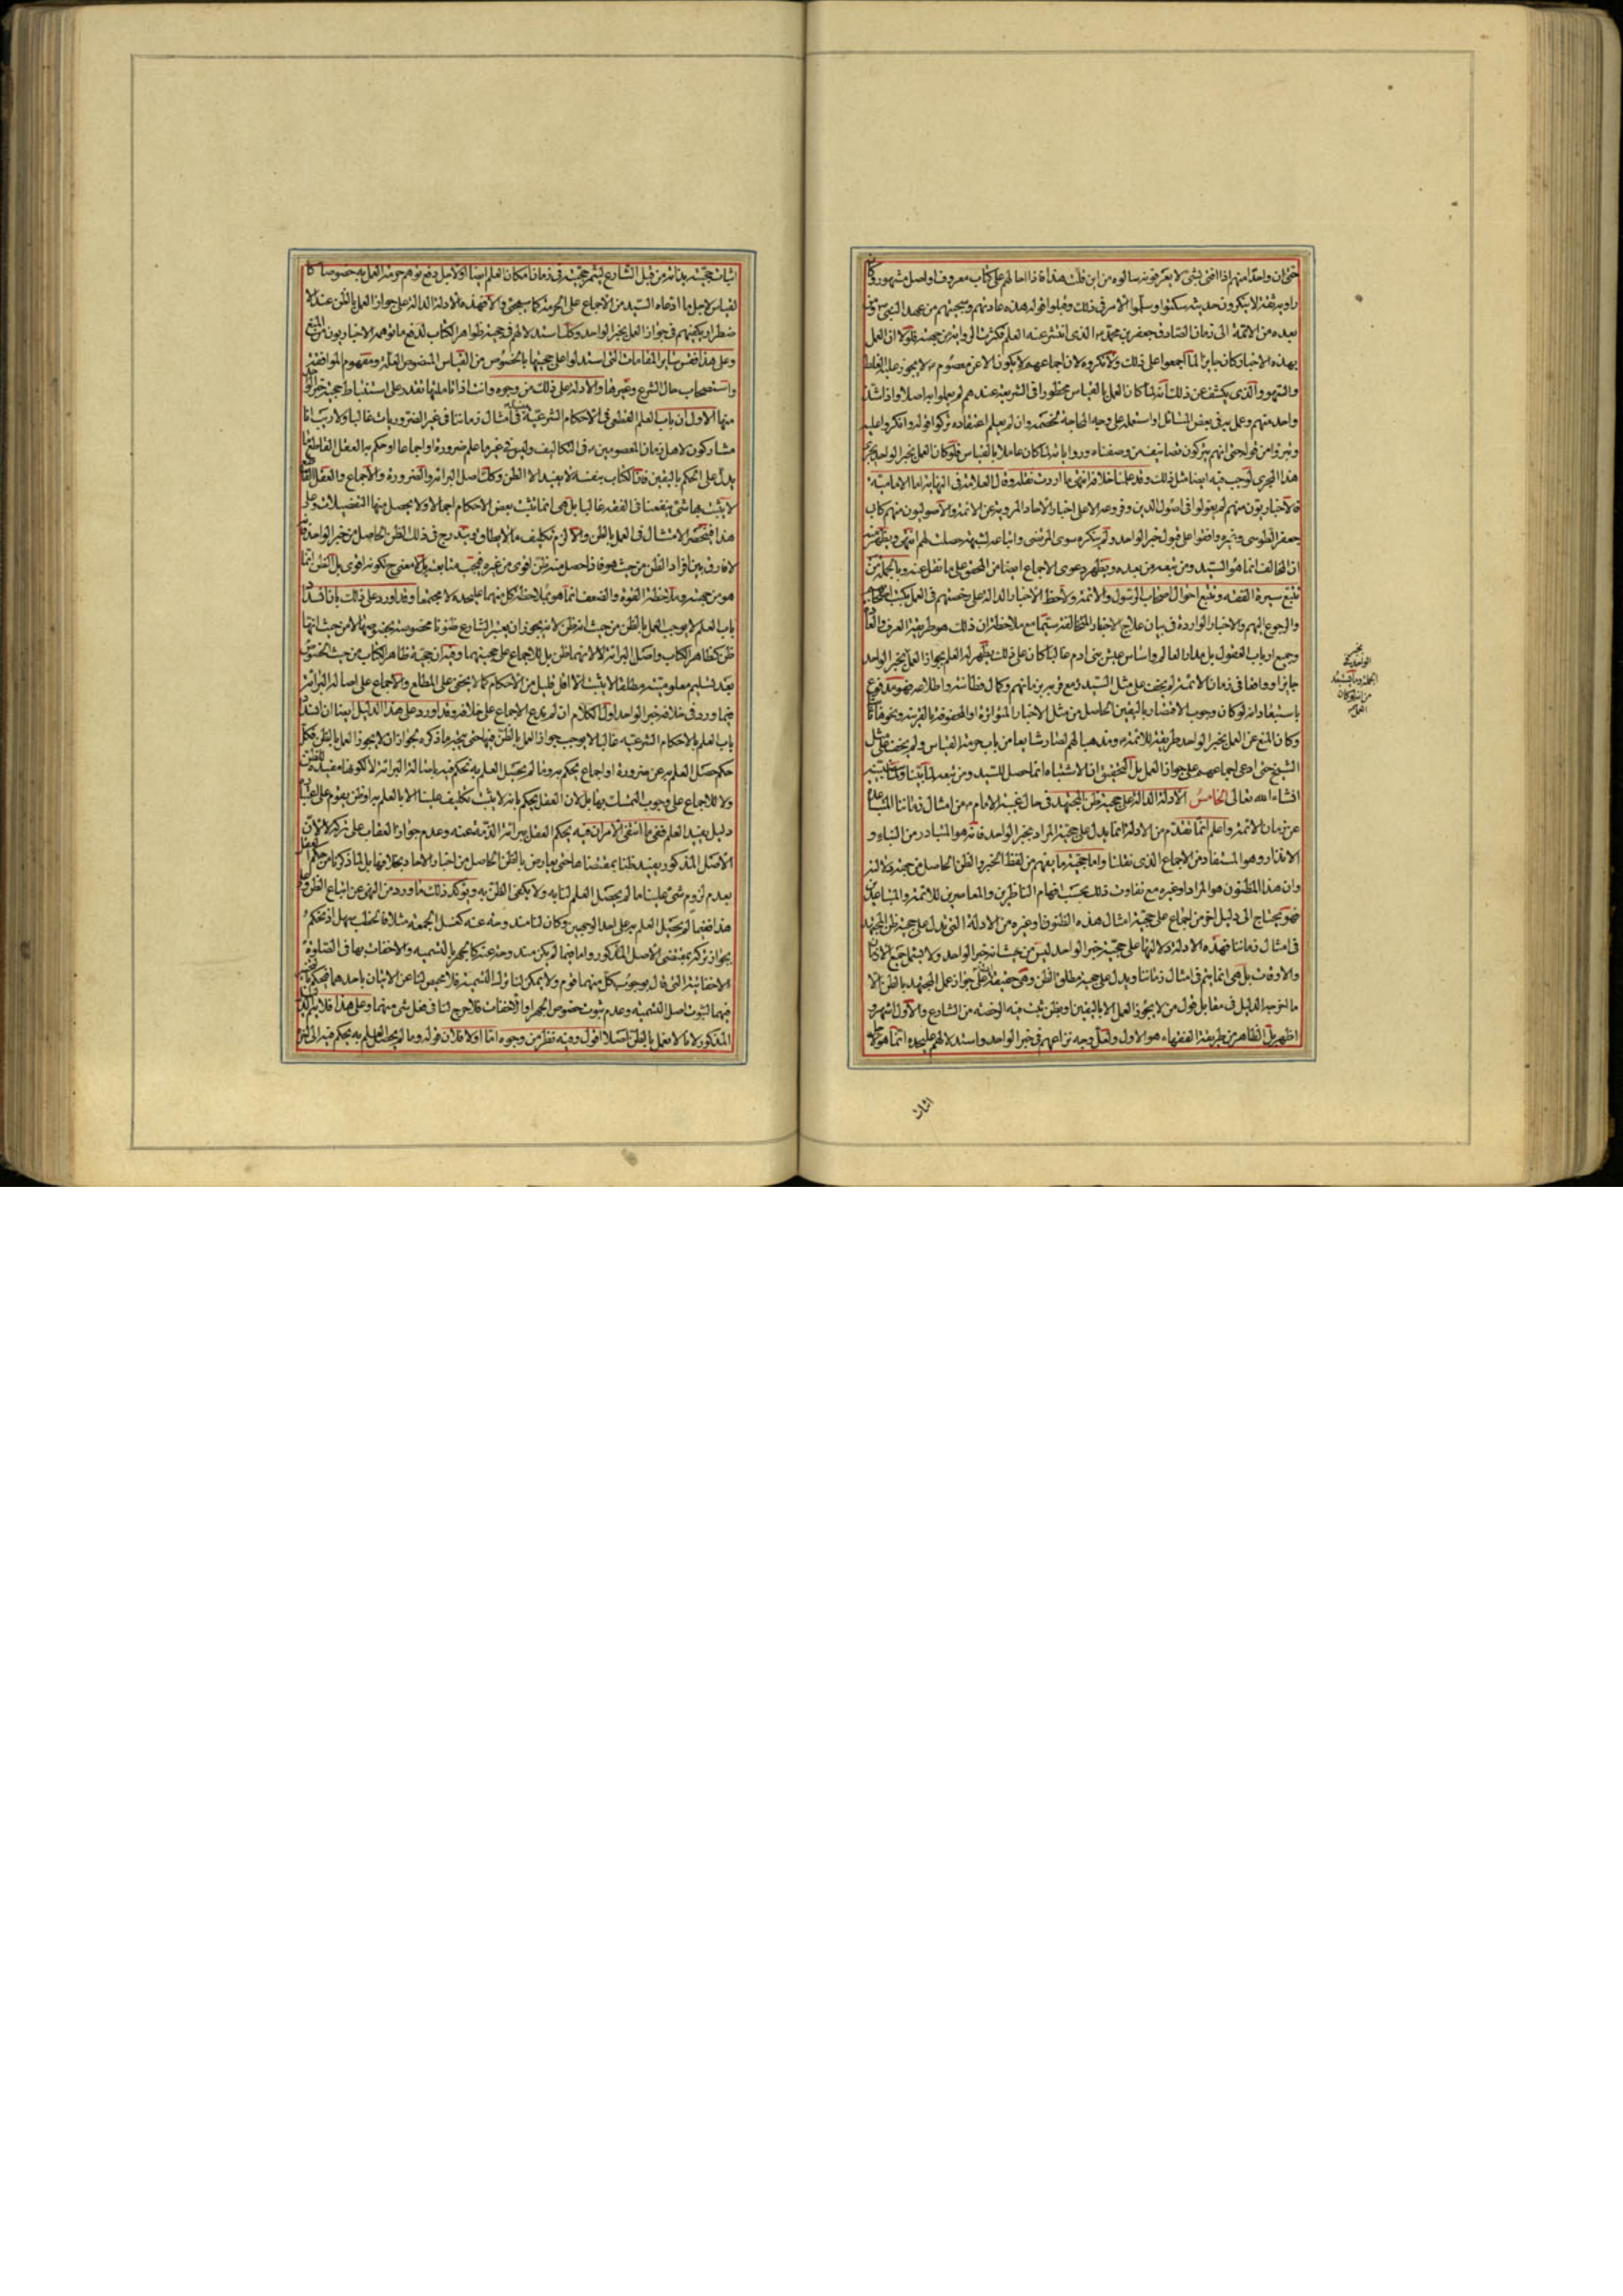 حتى ان واحدا منهم اذا افتى بشئ لا يعرفونه سالوه من اين قلت هذا فاذا احالهم على كتاب معروف او اصل مشهور وكا
راويه ثقة لا ينكرون حديثه سكتوا وسلموا الامر فى ذلك وقبلوا قوله هذه عادتهم وسجيتهم من عهد النبى ص ومن
بعده من الائمة الى زمان الصادق جعفر بن محمد ع الذى انتشر عنه العلم فكثرت الرواية من جهته فلولا ان العمل
بهذه الاخبار كان جايزا لما اجمعوا على ذلك ولانكروه لان اجماعهم لا يكون الا عن معصوم لا يجوز عليه الغلط
والسهو والذى يكشف عن ذلك انه لما كان العمل بالقياس محظورا فى الشريعة عندهم لم يعملوا به اصلا واذا شذ
واحد منهم وعمل به فى بعض المسائل او استعمله على وجه المحاجة لخصمه وان لم يعلم اعتقاده تركوا قوله وانكروا عليه
وتبروا من قوله حتى انهم يتركون تصانيف من وصفناه ورواياته لما كان عاملا بالقياس فلو كان العمل بخبر الواحد يجرى
هذا المجرى لوجب فيه ايضا مثل ذلك وقد علمنا خلافه انتهى ما اردت نقله وقال العلامة فى النهاية اما الامامية
فالاخباريون منهم لم يعولوا فى اصول الدين وفروعه الا على اخبار الاحاد المروية عن الائمة والاصوليون منهم كابى
جعفر الطوسى وغيره وافقوا على قبول خبر الواحد ولم ينكره سوى المرتضى واتباعه لشبهة حصلت لهم انتهى ويظهر منه
ان المخالف انما هو السيد ومن تبعه من بعده ويظهر دعوى الاجماع ايضا من المحقق على ما نقل عنه وبالجملة من
تتبع سيرة الفقه وتتبع احوال اصحاب الرسول والائمة ولاحظ الاخبار الدالة على رخصتهم فى العمل بكتب اصحابهم
والرجوع اليهم والاخبار الواردة فى بيان علاج الاخبار المتخالفة سيما مع ملاحظة ان ذلك هو طريقة العرف والعادة
وجميع ارباب العقول بل مدار العالم واساس عيش بنى ادم غالبا كان على ذلك يظهر له العلم بجواز العمل بخبر الواحد
جايزا وواضحا فى زمان الائمة لم يخف على مثل السيد مع قربه بزمانهم وكمال فطانته واطلاعه فهو مدفوع
باستبعاد انه لو كان وجوب الاقتصار باليقين الحاصل من مثل الاخبار المتواترة او المحفوفة بالقرينة ونحوها ثابتا
وكان المنع عن العمل بخبر الواحد طريقة للائمة ع ومذهبا لهم لصار شايعا من باب حرمة القياس ولم يخف على مثل
الشيخ حتى ادعى اجماعهم على جواز العمل بل التحقيق ان الاشتباه انما حصل للسيد ومن تبعه لما بينا وسنبينه
انشاء الله تعالى الخامس الادلة الدالة على حجية ظن المجتهد فى حال غيبة الامام ع من امثال زماننا المتباعدة
عن زمان الائمة واعلم انما تقدم من الادلة انما يدل على حجية المراد بخبر الواحد فانه هو المتبادر من النباء و
الانذار وهو المستفاد من الاجماع الذى نقلنا واما حجية ما يفهم من لفظ الخبر والظن الحاصل من جهة دلالته
وان هذا المظنون هو المراد او غيره مع تفاوت ذلك بحسب افهام الناظرين والمعاصرين للائمة والمتباعدين
فهو يحتاج الى دليل اخر من اجماع على حجية امثال هذه الظنون او غيره من الادلة التى يدل على حجية ظن المجتهد
فى امثال زماننا فهذه الادلة دلالتها على حجية خبر الواحد ليس من حيث انه خبر الواحد ولا يشمل جميع الازمان
والاوقات بل هى انما يتم فى امثال زماننا ويدل على حجية مطلق الظن وهى حقيقة ادلة على جواز عمل المجتهد بالظن الا
ما اخرجه الدليل فى مقابل قول من لا يجوز العمل الا باليقين او بظن ثبت فيه الرخصة من الشارع والاول اشهر و
اظهر بل الظاهر من طريقة الفقهاء هو الاول ولعل وجه نزاعهم فى خبر الواحد واستدلالهم عليحده انما هو
اثبات
اثبات حجيته بذاته من قبل الشارع ليثمر حجيته فى زمان امكان العلم ايضا او لاجل دفع توهم حرمة العمل به خصوصا كا
لقياس لاجل ما ادعاه السيد من الاجماع على الحرمة كما سيجئ والا فهذه الادلة الدالة على جواز العمل بالظن عند الا
ضطرار يكفيهم فى جواز العمل بخبر الواحد وكذا استدلالهم فى حجية ظواهر الكتاب لدفع ما توهمه الاخباريون من المنع
وعلى هذا فقس ساير المقامات التى استدلوا على حجيتها بالخصوص من القياس المنصوص العلة ومفهوم الموافقة
واستصحاب حال الشرع وغيرها والادلة على ذلك من وجوه وانت اذا تاملتها تقدر على استنباط حجية خبر الوا
منها الاول ان باب العلم القطعى فى الاحكام الشرعية فى امثال زماننا فى غير الضروريات غالبا ولا ريب انا
مشاركون لاهل زمان المعصومين ع فى التكاليف وليس فى غير ما علم ضرورة او اجماعا او حكم به العقل القاطع ما
يدل على الحكم باليقين فان الكتاب بنفسه لا يفيد الا الظن وكذا اصل البرائة والضرورة والاجماع والعقل القاطع
لا يثبت بها شئ ينفعنا فى الفقه غالبا بل هى انما تثبت بعض الاحكام اجمالا ولا يحصل منها التفصيلات وعلى
هذا فينحصر الامتثال فى العمل بالظن والا لزم تكليف ما لا يطاق ويندرج فى ذلك الظن الحاصل من خبر الواحد فا
لا فارق بين افراد الظن من حيث هو فاذا حصل منه ظن اقوى من غيره فيجب متابعته بل لا معنى ح لكونه اقوى بل الظن انما
هو من جهته وملاحظة القوة والضعف انما هو بملاحظة كل منهما عليحده لا مجتمعا وقد اورد على ذلك بان انسداد
باب العلم لا يوجب العمل بالظن من حيث انه ظن لانه يجوز ان يعتبر الشارع ظنونا مخصوصة بخصوصها لا من حيث انها
ظن كظاهر الكتاب واصل البرائة لا لانهما ظن بل للاجماع على حجيتهما وفيه ان حجية ظاهر الكتاب من حيث الخصوص
بعد تسليم معلوميته مطلقا لا يثبت الا اقل قليل من الاحكام كما لا يخفى على المطلع والاجماع على اصالة البرائة
فيما ورد فى خلافه خبر الواحد اول الكلام ان لم يدع الاجماع على خلافه وقد اورد على هذا الدليل ايضا ان انسداد
باب العلم بالاحكام الشرعية غالبا لا يوجب جواز العمل بالظن فيها حتى يتجه ما ذكره لجواز ان لا يجوز العمل بالظن فكل
حكم حصل العلم به عن ضرورة او اجماع يحكم به وما لم يحصل العلم به نحكم فيه باصالة البرائة لا لكونها مفيدة للظن
ولا للاجماع على وجوب التمسك بها بل لان العقل يحكم بانه لا يثبت تكليف علينا الا بالعلم به او ظن يقوم على اعتباره
دليل يفيد العلم ففى ما انتفى الامران فيه يحكم العقل ببرائة الذمة عنه وعدم جواز العقاب على تركه لا لان
الاصل المذكور يفيد ظنا بمقتضاها حتى يعارض بالظن الحاصل من اخبار الاحاد بخلافها بل لما ذكرنا من حكم العقل
بعدم لزوم شئ علينا ما لم يحصل العلم لنا به ولا يكفى الظن به ويؤكد ذلك ما ورد من النهى عن اتباع الظن وعلى
هذا ففيما لم يحصل العلم به على احد الوجهين وكان لنا مندوحة عنه كغسل الجمعة مثلا فالخطب سهل اذ نحكم
بجواز تركه بمقتضى الاصل المذكور واما فيما لم يكن مندوحة عنه كالجهر بالتسمية والاخفات بها فى الصلوة
الاخفاتية التى قال بوجوب كل منهما قوم ولا يمكن لنا ترك التسمية فلا محيص لنا عن الاتيان باحدهما فنحكم بالتخيير
فيهما لثبوت اصل التسمية وعدم ثبوت خصوص الجهر او الاخفات فلا حرج لنا فى فعل شئ منهما وعلى هذا فلا يتم الدليل
المذكور لانا لا نعمل بالظن اصلا اقول وفيه نظر من وجوه اما اولا فلان قوله وما لم يحصل العلم به يحكم فيه